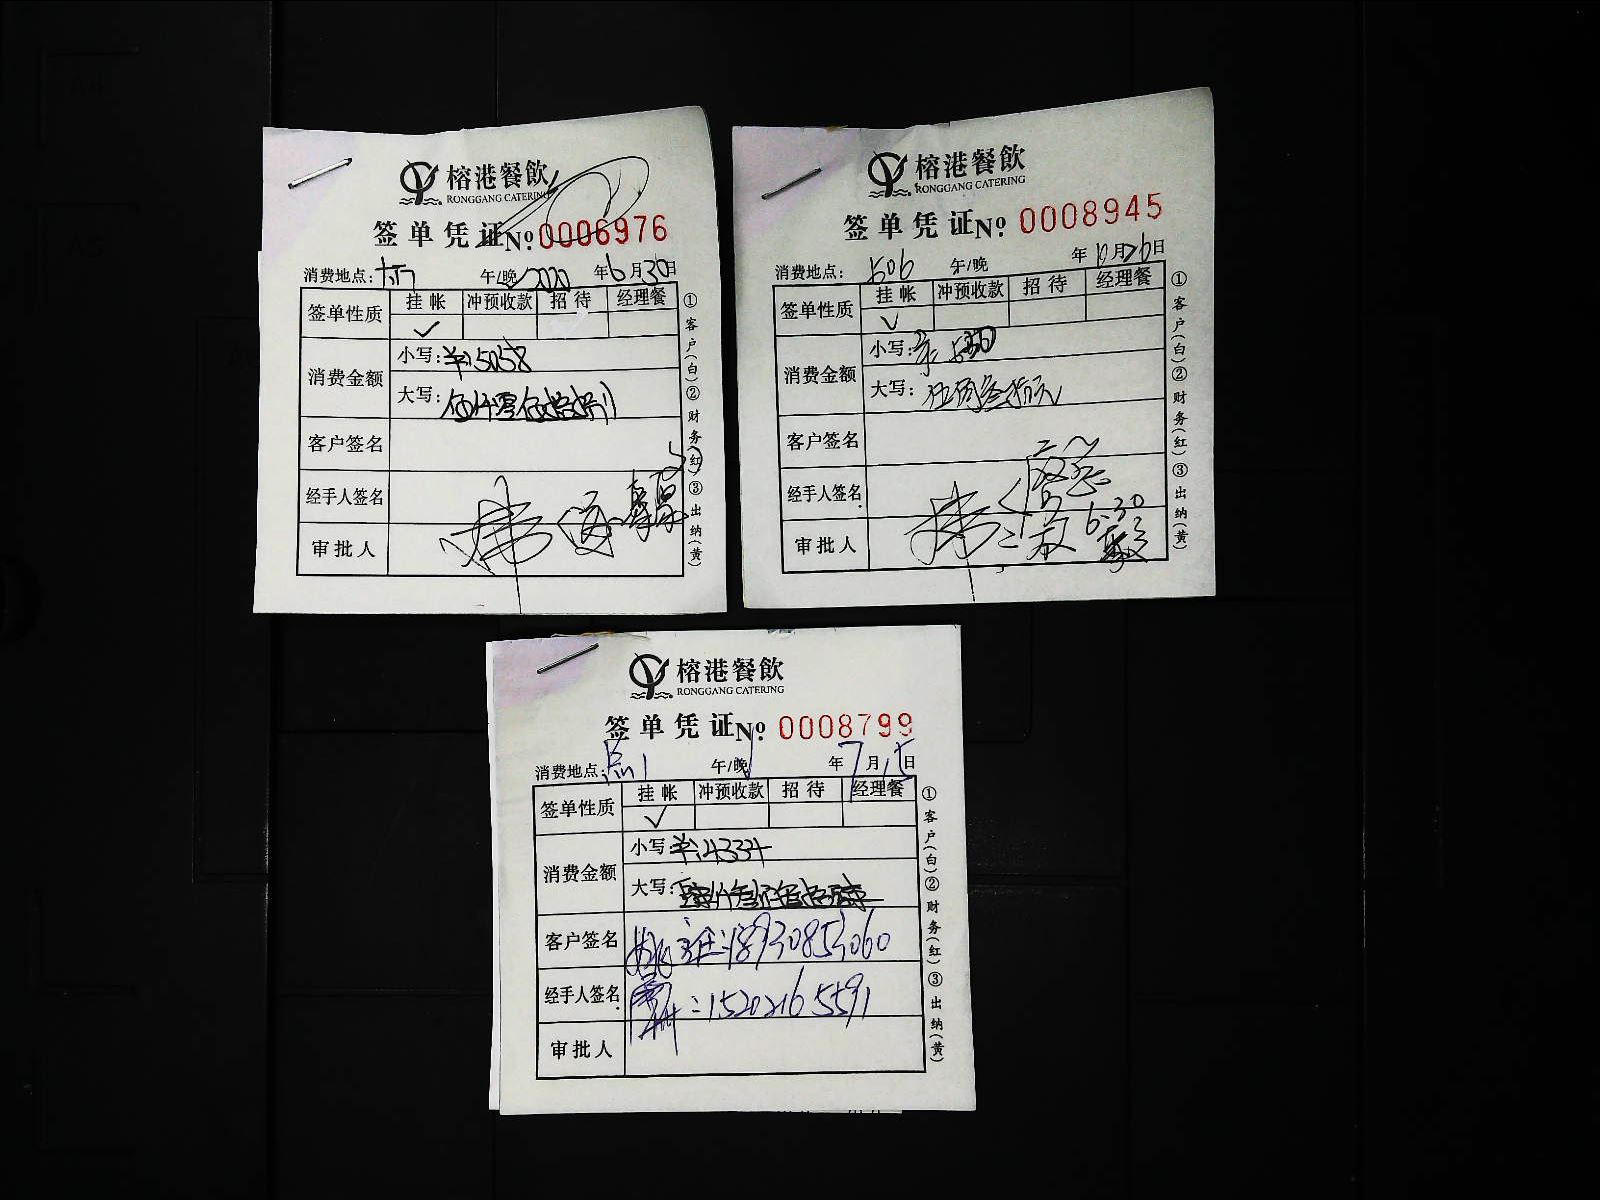 榕港餐飲
RONGGANG CATERING
签单凭证 No 0006976
消费地点: 午/晚 2020年6月30日
签单性质 挂帐 冲预收款 招待 经理餐
✓
消费金额 小写:¥:5058
大写:伍仟零伍拾捌
客户签名
经手人签名
审批人
①客户(白)②财务(红)③出纳(黄)
榕港餐飲
RONGGANG CATERING
签单凭证 No 0008945
消费地点: 506 午/晚 年 月26日
签单性质 挂帐 冲预收款 招待 经理餐
✓
消费金额 小写: 530
大写: 伍佰叁拾元
客户签名
经手人签名
审批人 6.30
①客户(白)②财务(红)③出纳(黄)
榕港餐飲
RONGGANG CATERING
签单凭证 No 0008799
消费地点: 午/晚 年7月15日
签单性质 挂帐 冲预收款 招待 经理餐
✓
消费金额 小写:¥:4334
大写:
客户签名 姚主任:18930853060
经手人签名 :15202165591
审批人
①客户(白)②财务(红)③出纳(黄)